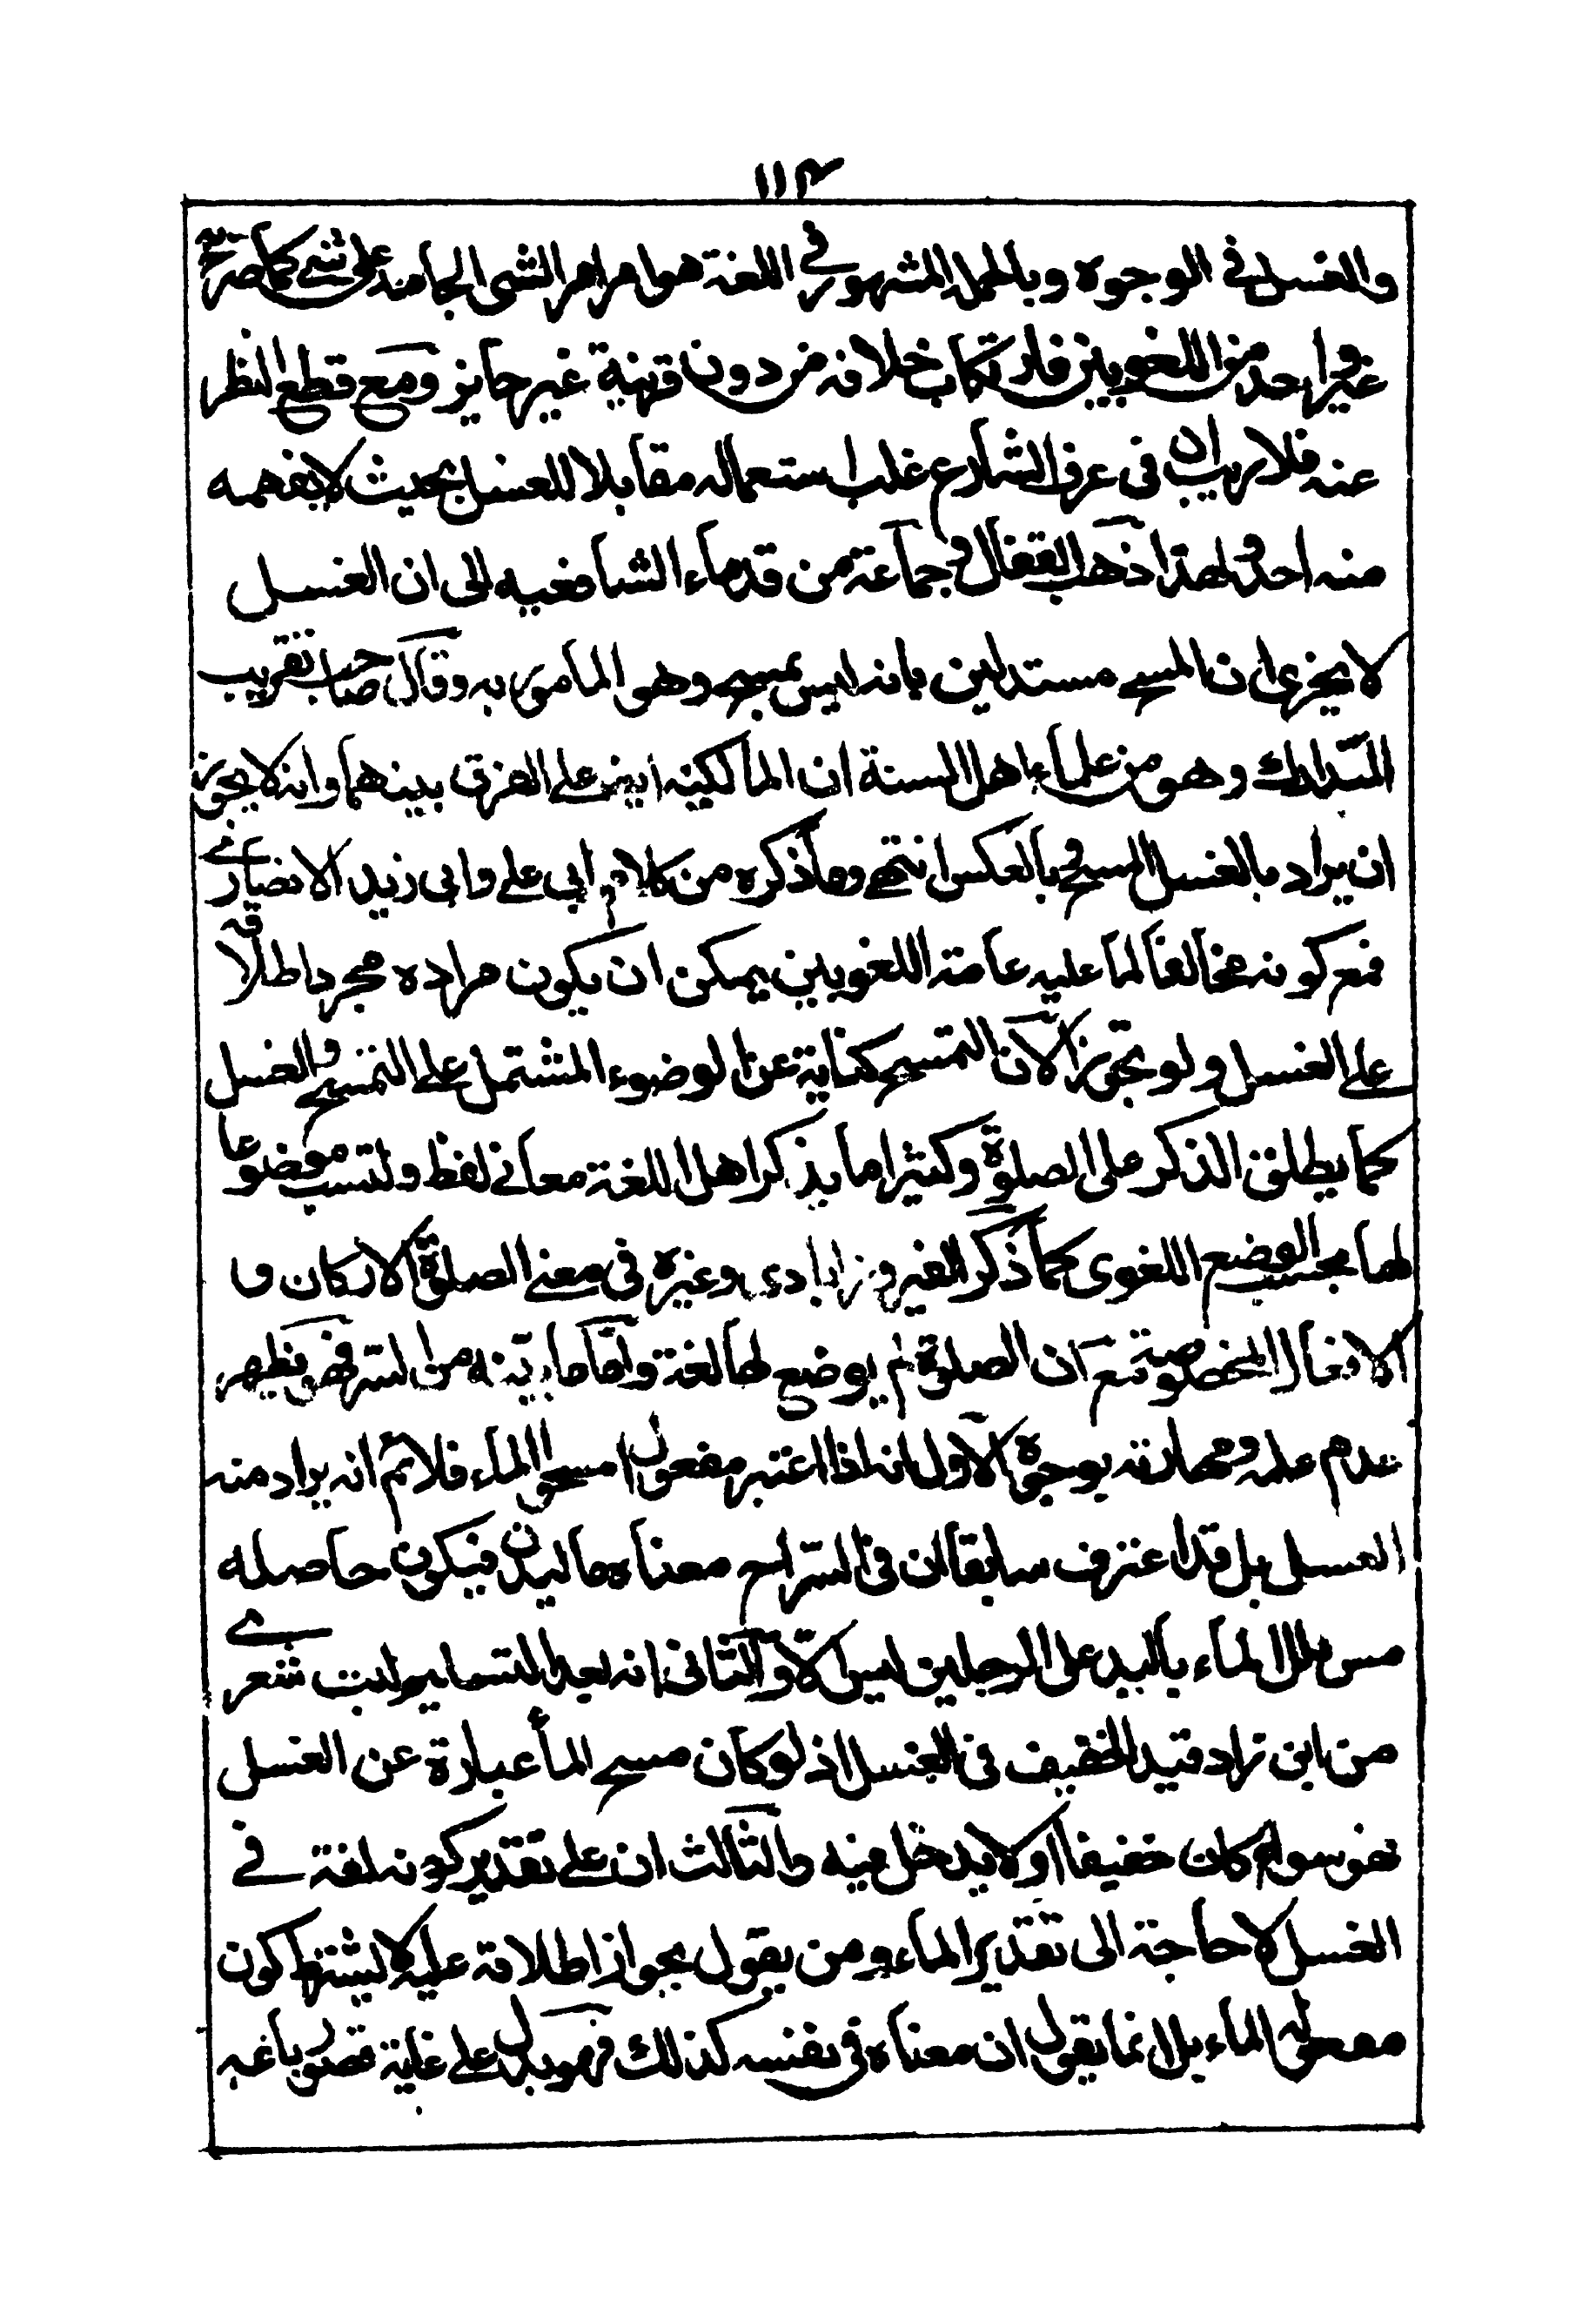 ١١٣
والغسل في الوجوه وبالجملة المشهور في اللغة هو امرار الشي الجامد على شي كما صرح به
غير واحد من اللغويين فارتكاب خلافه من دون قرينة غير جايز ومع قطع النظر
عنه فلا ريب ان في عرف الشارع غلب استعماله مقابلا للغسل بحيث لا يفهمه
منه احد ولهذا ذهب القفال وجماعة من قدماء الشافعيه الى ان الغسل
لا يجزى ان المسح مستدلين بانه ليس بمسح وهو المأمور به وقال صاحب تقريب
المدارك وهو من علماء اهل السنة ان المالكية على الفرق بينهما وانه لا يجوز
ان يراد بالغسل المسح وبالعكس انتهى وما ذكره من كلام ابى على وابى زيد الانصارے
فمع كونه مخالفا لما عليه عامة اللغويين يمكن ان يكون مراده مجرد اطلاقه
على الغسل ولو تجوزا لان التمسح كناية عن الوضوء المشتمل على التمسح والغسل
كما يطلق الذكر على الصلوة وكثيرا ما يذكر اهل اللغة معانے لفظ وليست موضوعا
لها بحسب الوضع اللغوى كما ذكر الفيروزابادى وغيره فى معنے الصلوة الاركان و
الافعال المخصوصة مع ان الصلوة لم يوضع لها لغة واما ما بينه من السر فهو يظهر
عدم علمه ومهارته بوجوه الاول انه اذا اعتبر مفعول امسحوا الماء فلا نم انه يراد منه
الغسل بل قد اعترف سابقا ان فى معناه ماليدن فيكون حاصله
مس بلل الماء باليد على الرجلين ليس الا والثانى انه بعد التسليم ليت شعرے
من اين زاد قيد الخفيف فى الغسل اذ لو كان مسح الماء عبارة عن الغسل
فهو سواء كان خفيفا او لا يدخل فيه والثالث ان على تقدير كونه لغة فے
الغسل لا حاجة الى تقدير الماء ومن يقول بجواز اطلاقه عليه لا يشترط كون
مفعوله الماء بل انما يقول ان معناه فى نفسه كذلك فهو يدل على غاية قصور باعه